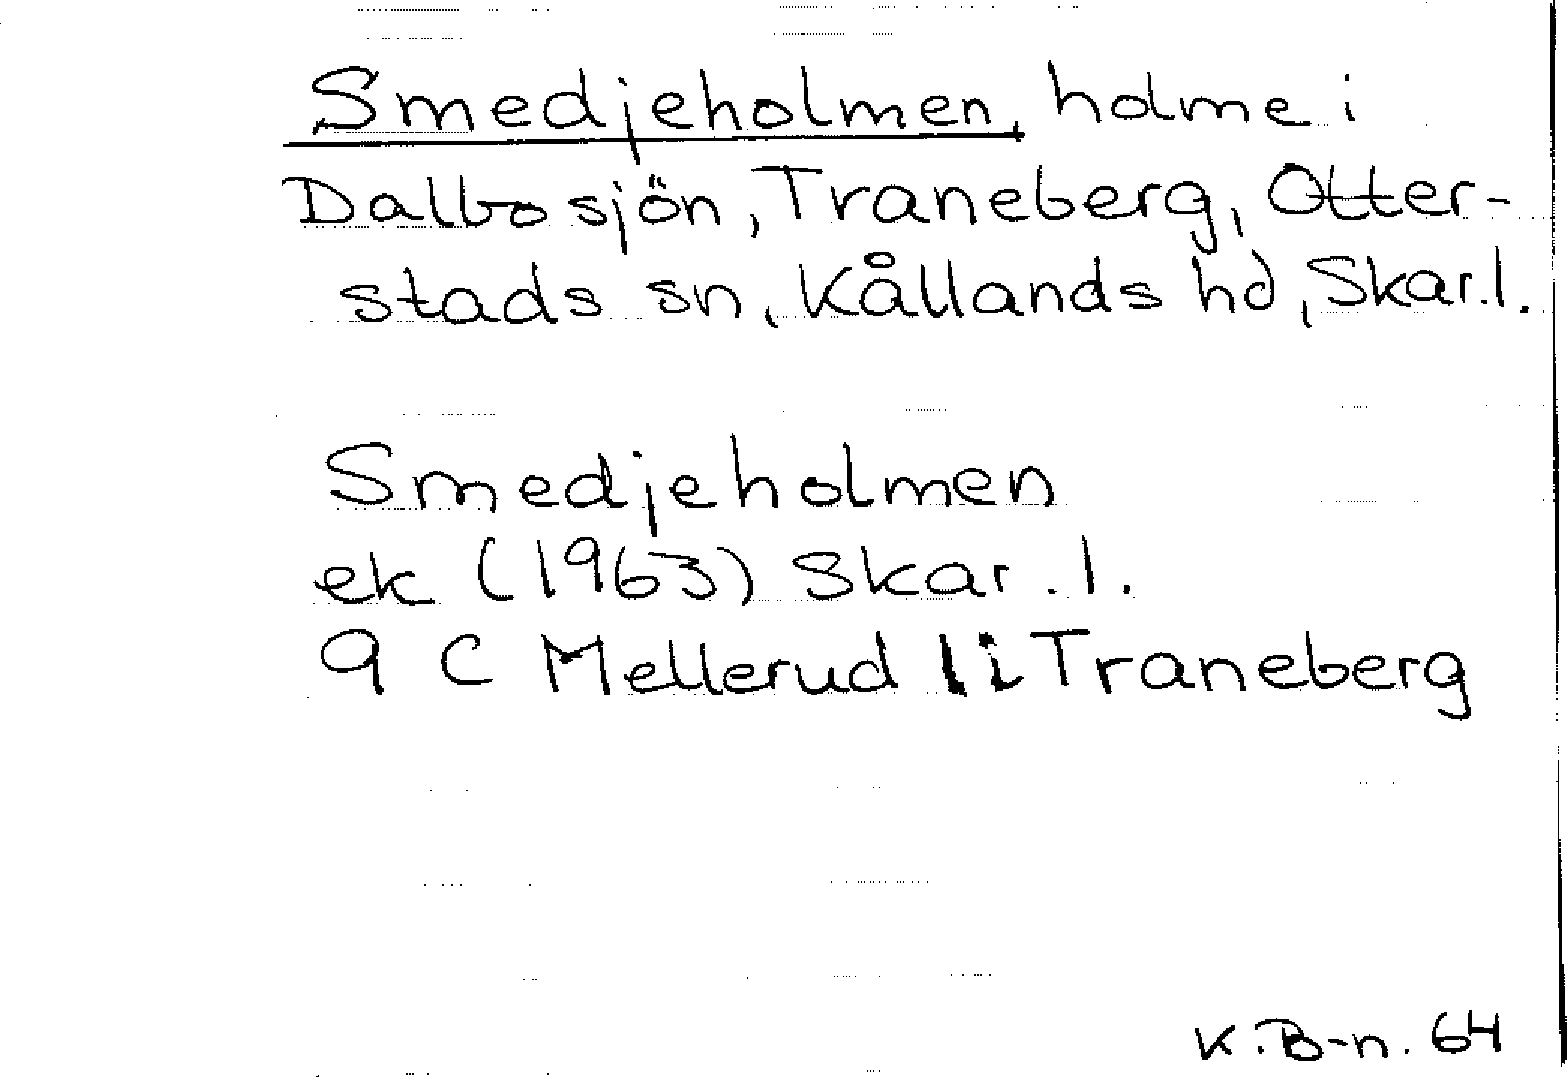 Smedjeholmen, holme i
Dalbosjön, Traneberg, Otter-
stads sn, Kållands hd, Skar.l.
Smedjeholmen
ek (1963) Skar.l.
9 C Mellerud 1 i Traneberg
K.B-n. 64